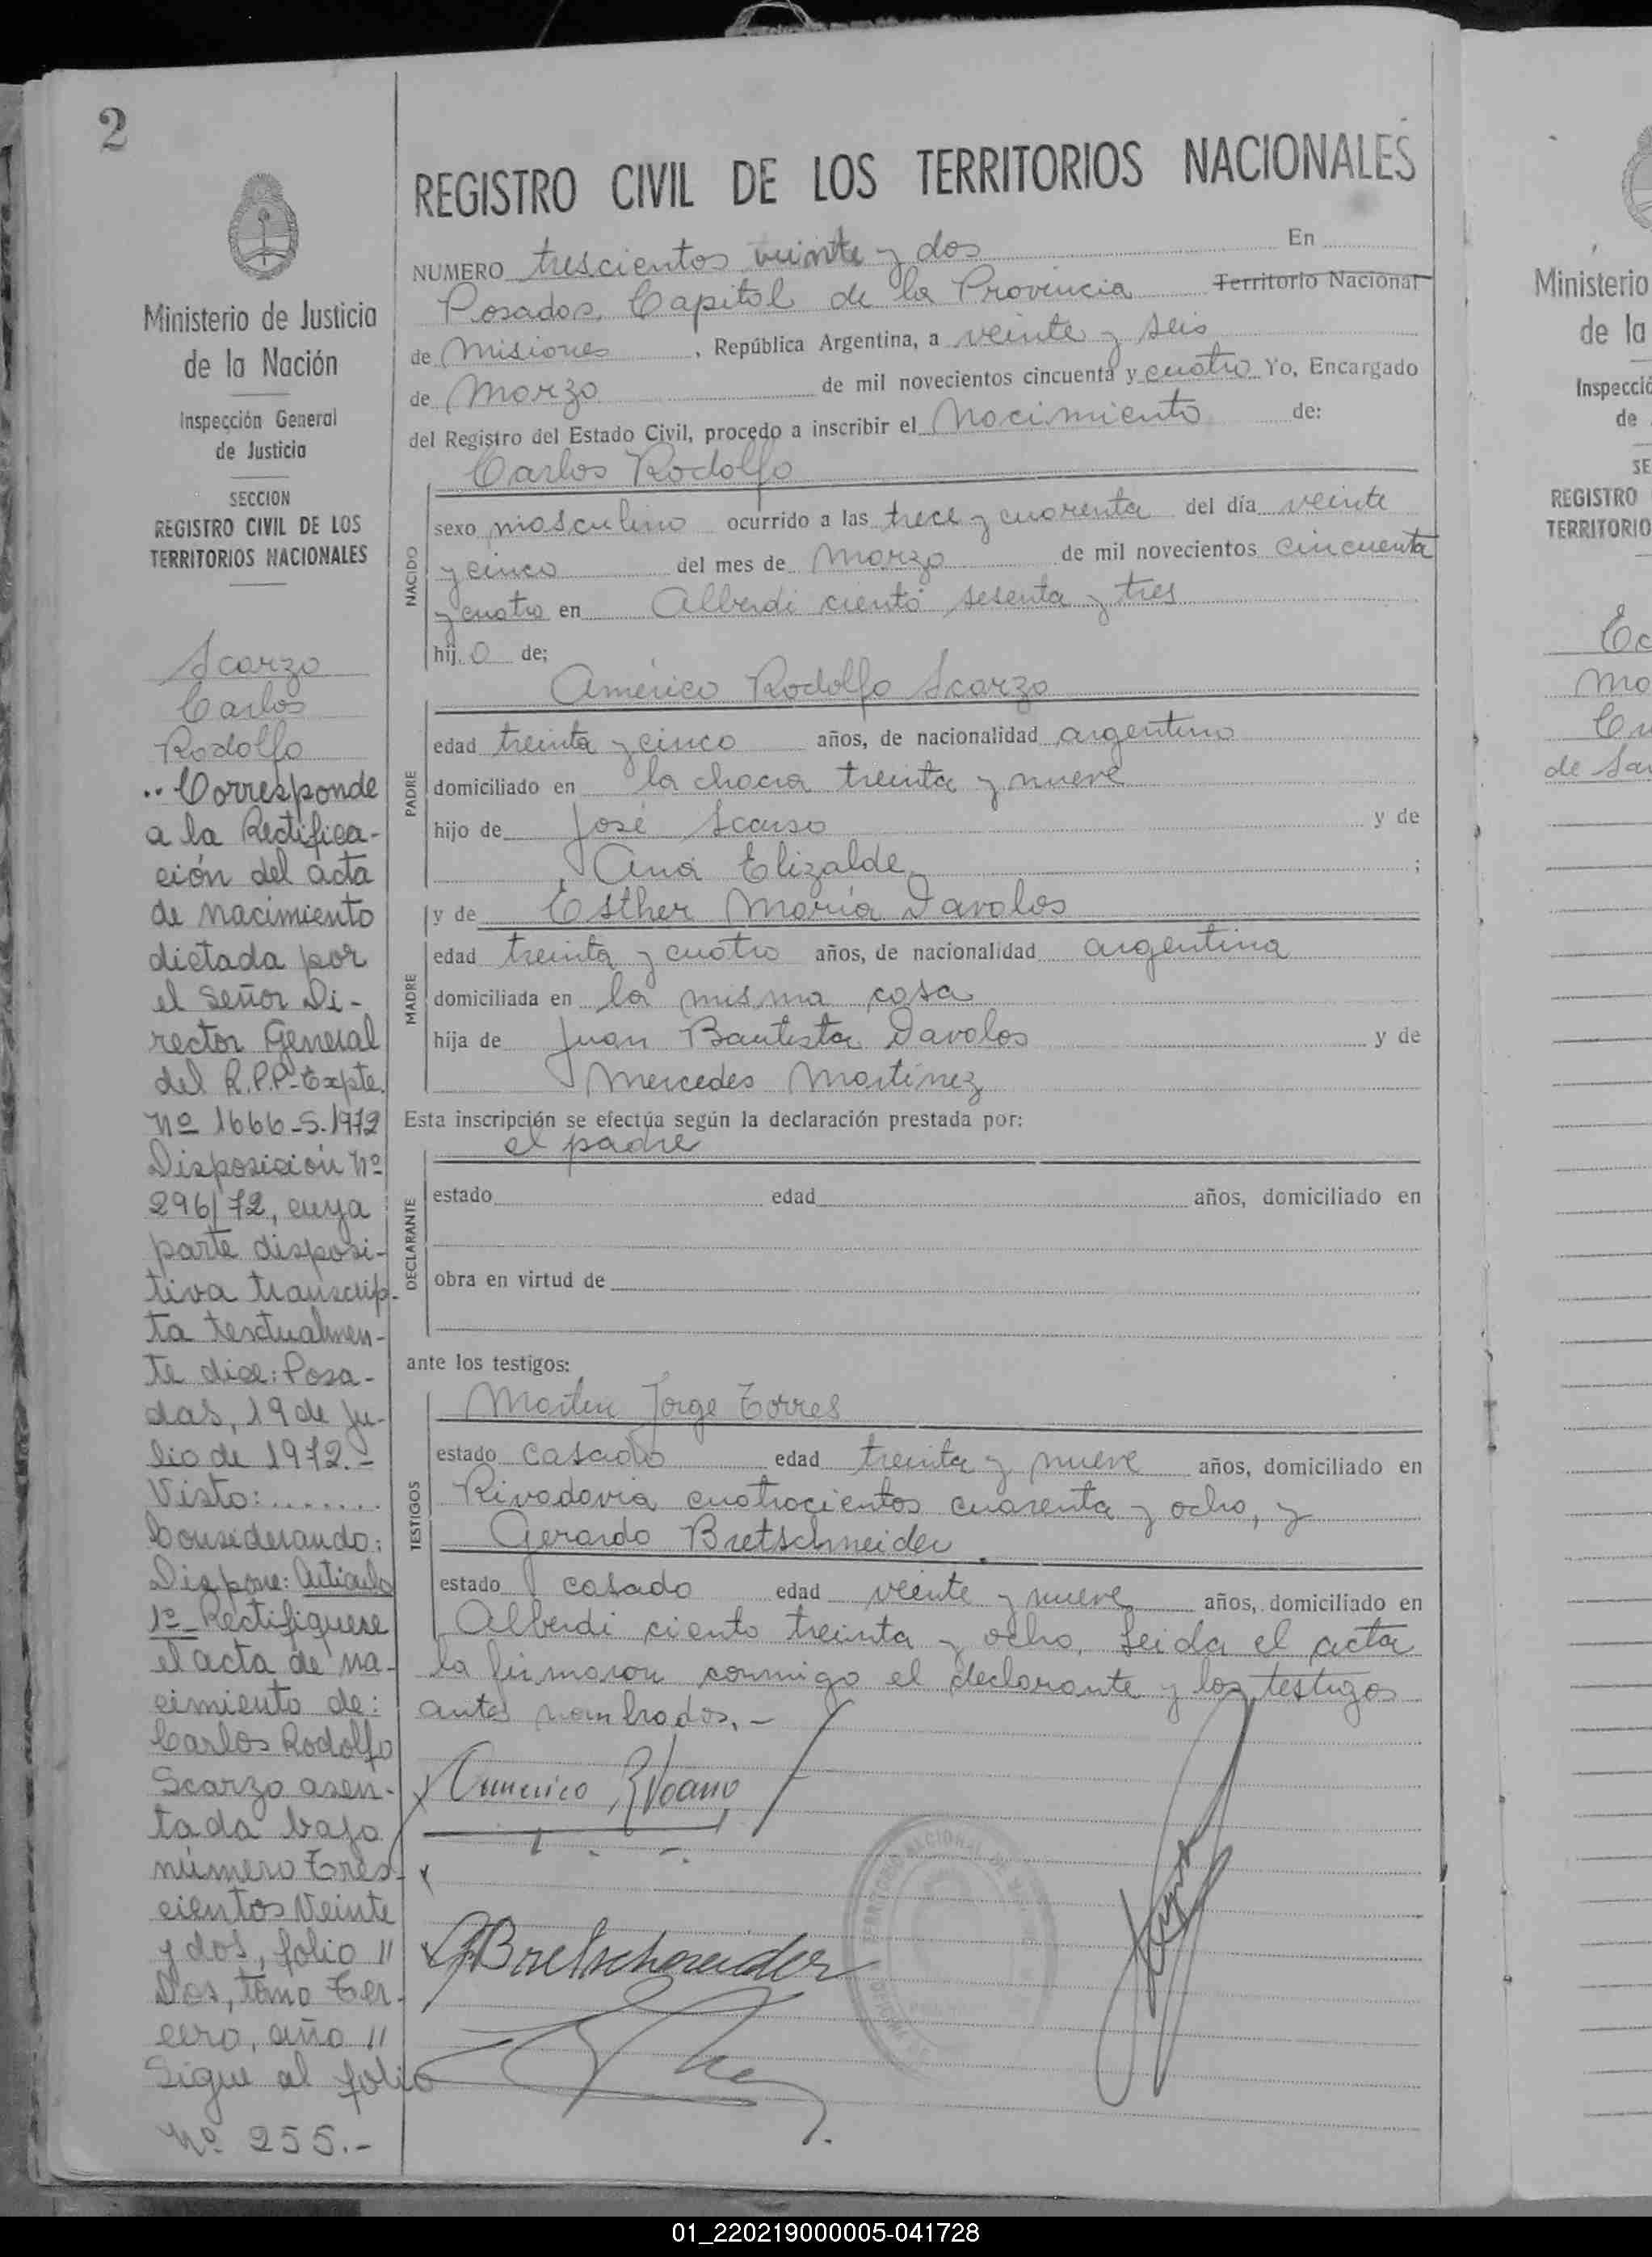 2
Ministerio de Justicia
de la Nación
Inspección General
de Justicia
SECCION
REGISTRO CIVIL DE LOS
TERRITORIOS NACIONALES
Scarzo
Carlos
Rodolfo
.. Corresponde
a la Rectifica-
ción del acta
de nacimiento
dictada por
el Señor Di-
rector General
del R.P.P-Expte.
Nº 1666-S-1972
Disposición Nº
296/72, cuya
parte disposi-
tiva transcrip-
ta textualmen-
te dice: Posa-
das, 19 de Ju-
lio de 1972.-
Visto: .......
Considerando:
Dispone: Artículo
1º- Rectifíquese
el acta de na-
cimiento de:
Carlos Rodolfo
Scarzo asen-
tada bajo
número Tres-
cientos Veinte
y dos, folio "
Dos, tomo Ter-
cero, año "
Sigue al folio
Nº 255.-
REGISTRO CIVIL DE LOS TERRITORIOS NACIONALES
NUMERO trescientos veinte y dos En
Posadas, Capital de la Provincia Territorio Nacional
de Misiones, República Argentina, a veinte y seis
de Marzo de mil novecientos cincuenta y cuatro Yo, Encargado
del Registro del Estado Civil, procedo a inscribir el Nacimiento de:
Carlos Rodolfo
NACIDO
sexo masculino ocurrido a las trece y cuarenta del día veinte
y cinco del mes de Marzo de mil novecientos cincuenta
y cuatro en Alberdi ciento sesenta y tres
hijo de;
Américo Rodolfo Scarzo
PADRE
edad treinta y cinco años, de nacionalidad argentino
domiciliado en la chacra treinta y nueve
hijo de José Scarso y de
Ana Elizalde ;
y de Esther María Davalos
MADRE
edad treinta y cuatro años, de nacionalidad argentina
domiciliada en la misma casa
hija de Juan Bautista Davalos y de
Mercedes Martínez
Esta inscripción se efectúa según la declaración prestada por:
el padre
DECLARANTE
estado edad años, domiciliado en
obra en virtud de
ante los testigos:
Martin Jorge Torres
TESTIGOS
estado casado edad treinta y nueve años, domiciliado en
Rivadavia cuatrocientos cuarenta y ocho, y
Gerardo Bretschneider.
estado casado edad veinte y nueve años, domiciliado en
Alberdi ciento treinta y ocho. Leida el acta
la firmaron conmigo el declarante y los testigos
antes nombrados.-
Bretschneider
TERRITORIO NACIONAL DE
Ministerio
de la
Inspecció
de
SE
REGISTRO
TERRITORIO
de
01_220219000005-041728